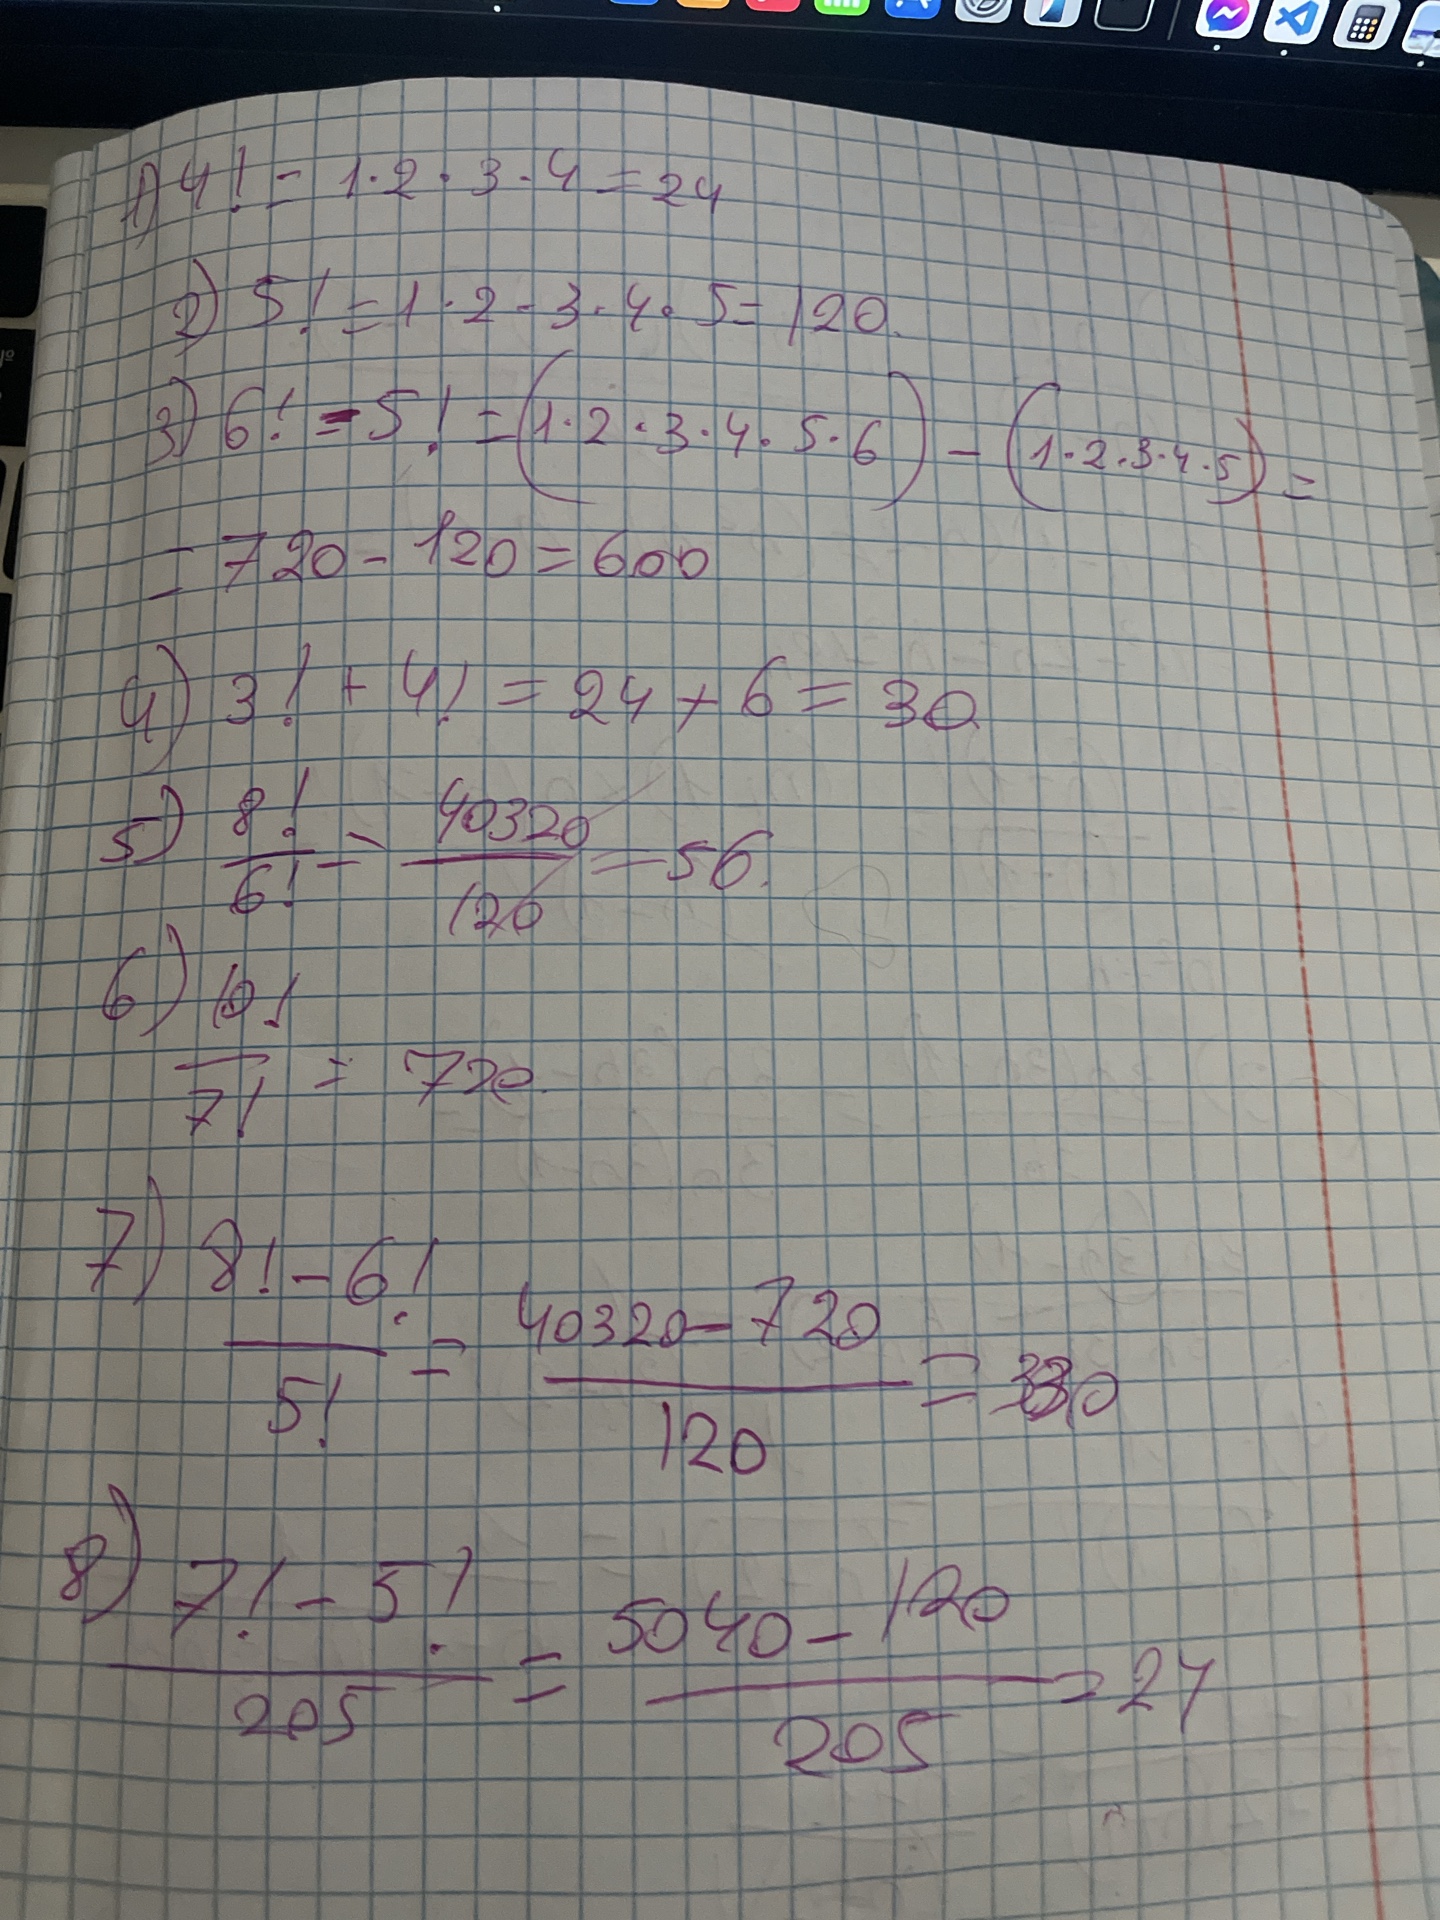 1) 4! = 1·2·3·4 = 24
2) 5! = 1·2·3·4·5 = 120.
3) 6! - 5! = (1·2·3·4·5·6) - (1·2·3·4·5) =
= 720 - 120 = 600
4) 3! + 4! = 24 + 6 = 30
5) 8!/6! = 40320/120 = 56.
6) 10!/7! = 720.
7) (8! - 6!)/5! = (40320 - 720)/120 = 330
8) (7! - 5!)/205 = (5040 - 120)/205 = 24